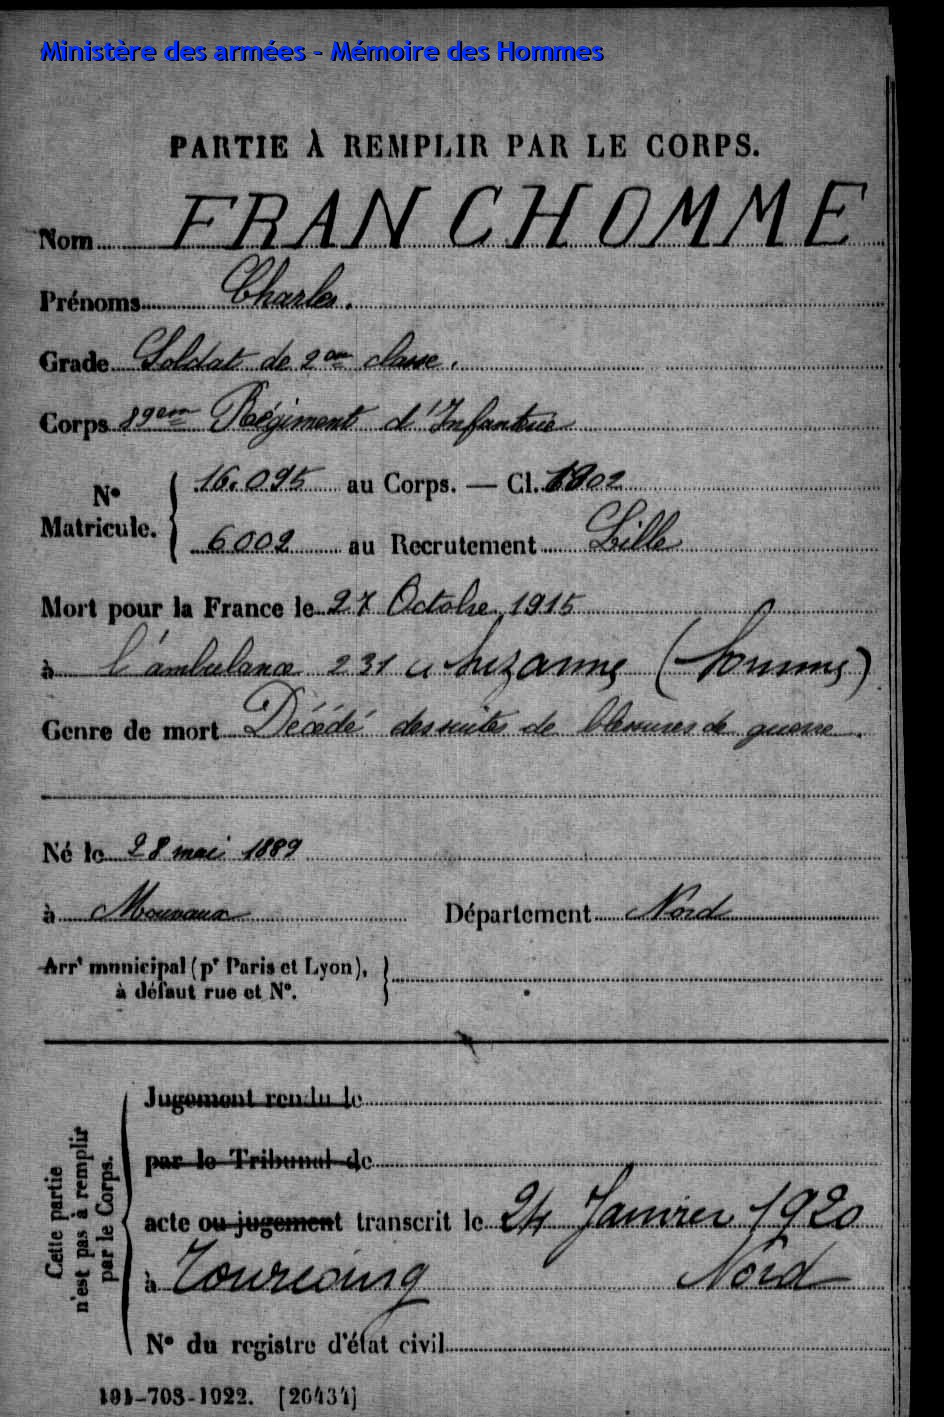 Ministère des armées - Mémoire des Hommes
PARTIE À REMPLIR PAR LE CORPS.
Nom FRANCHOMME
Prénoms Charles.
Grade Soldat de 2eme classe.
Corps 89eme Régiment d'Infanterie
N° Matricule. 16.095 au Corps. — Cl. 1902
6002 au Recrutement Lille
Mort pour la France le 27 Octobre 1915
à l'ambulance 231 à Suzanne (Somme)
Genre de mort Décédé des suites de blessures de guerre.
Né le 28 mai 1889
à Mouvaux Département Nord
Arrt municipal (pr Paris et Lyon),
à défaut rue et N°.
Cette partie
n'est pas à remplir
par le Corps.
Jugement rendu le
par le Tribunal de
acte ou jugement transcrit le 24 Janvier 1920
à Tourcoing Nord
N° du registre d'état civil
101-708-1922. [26434]